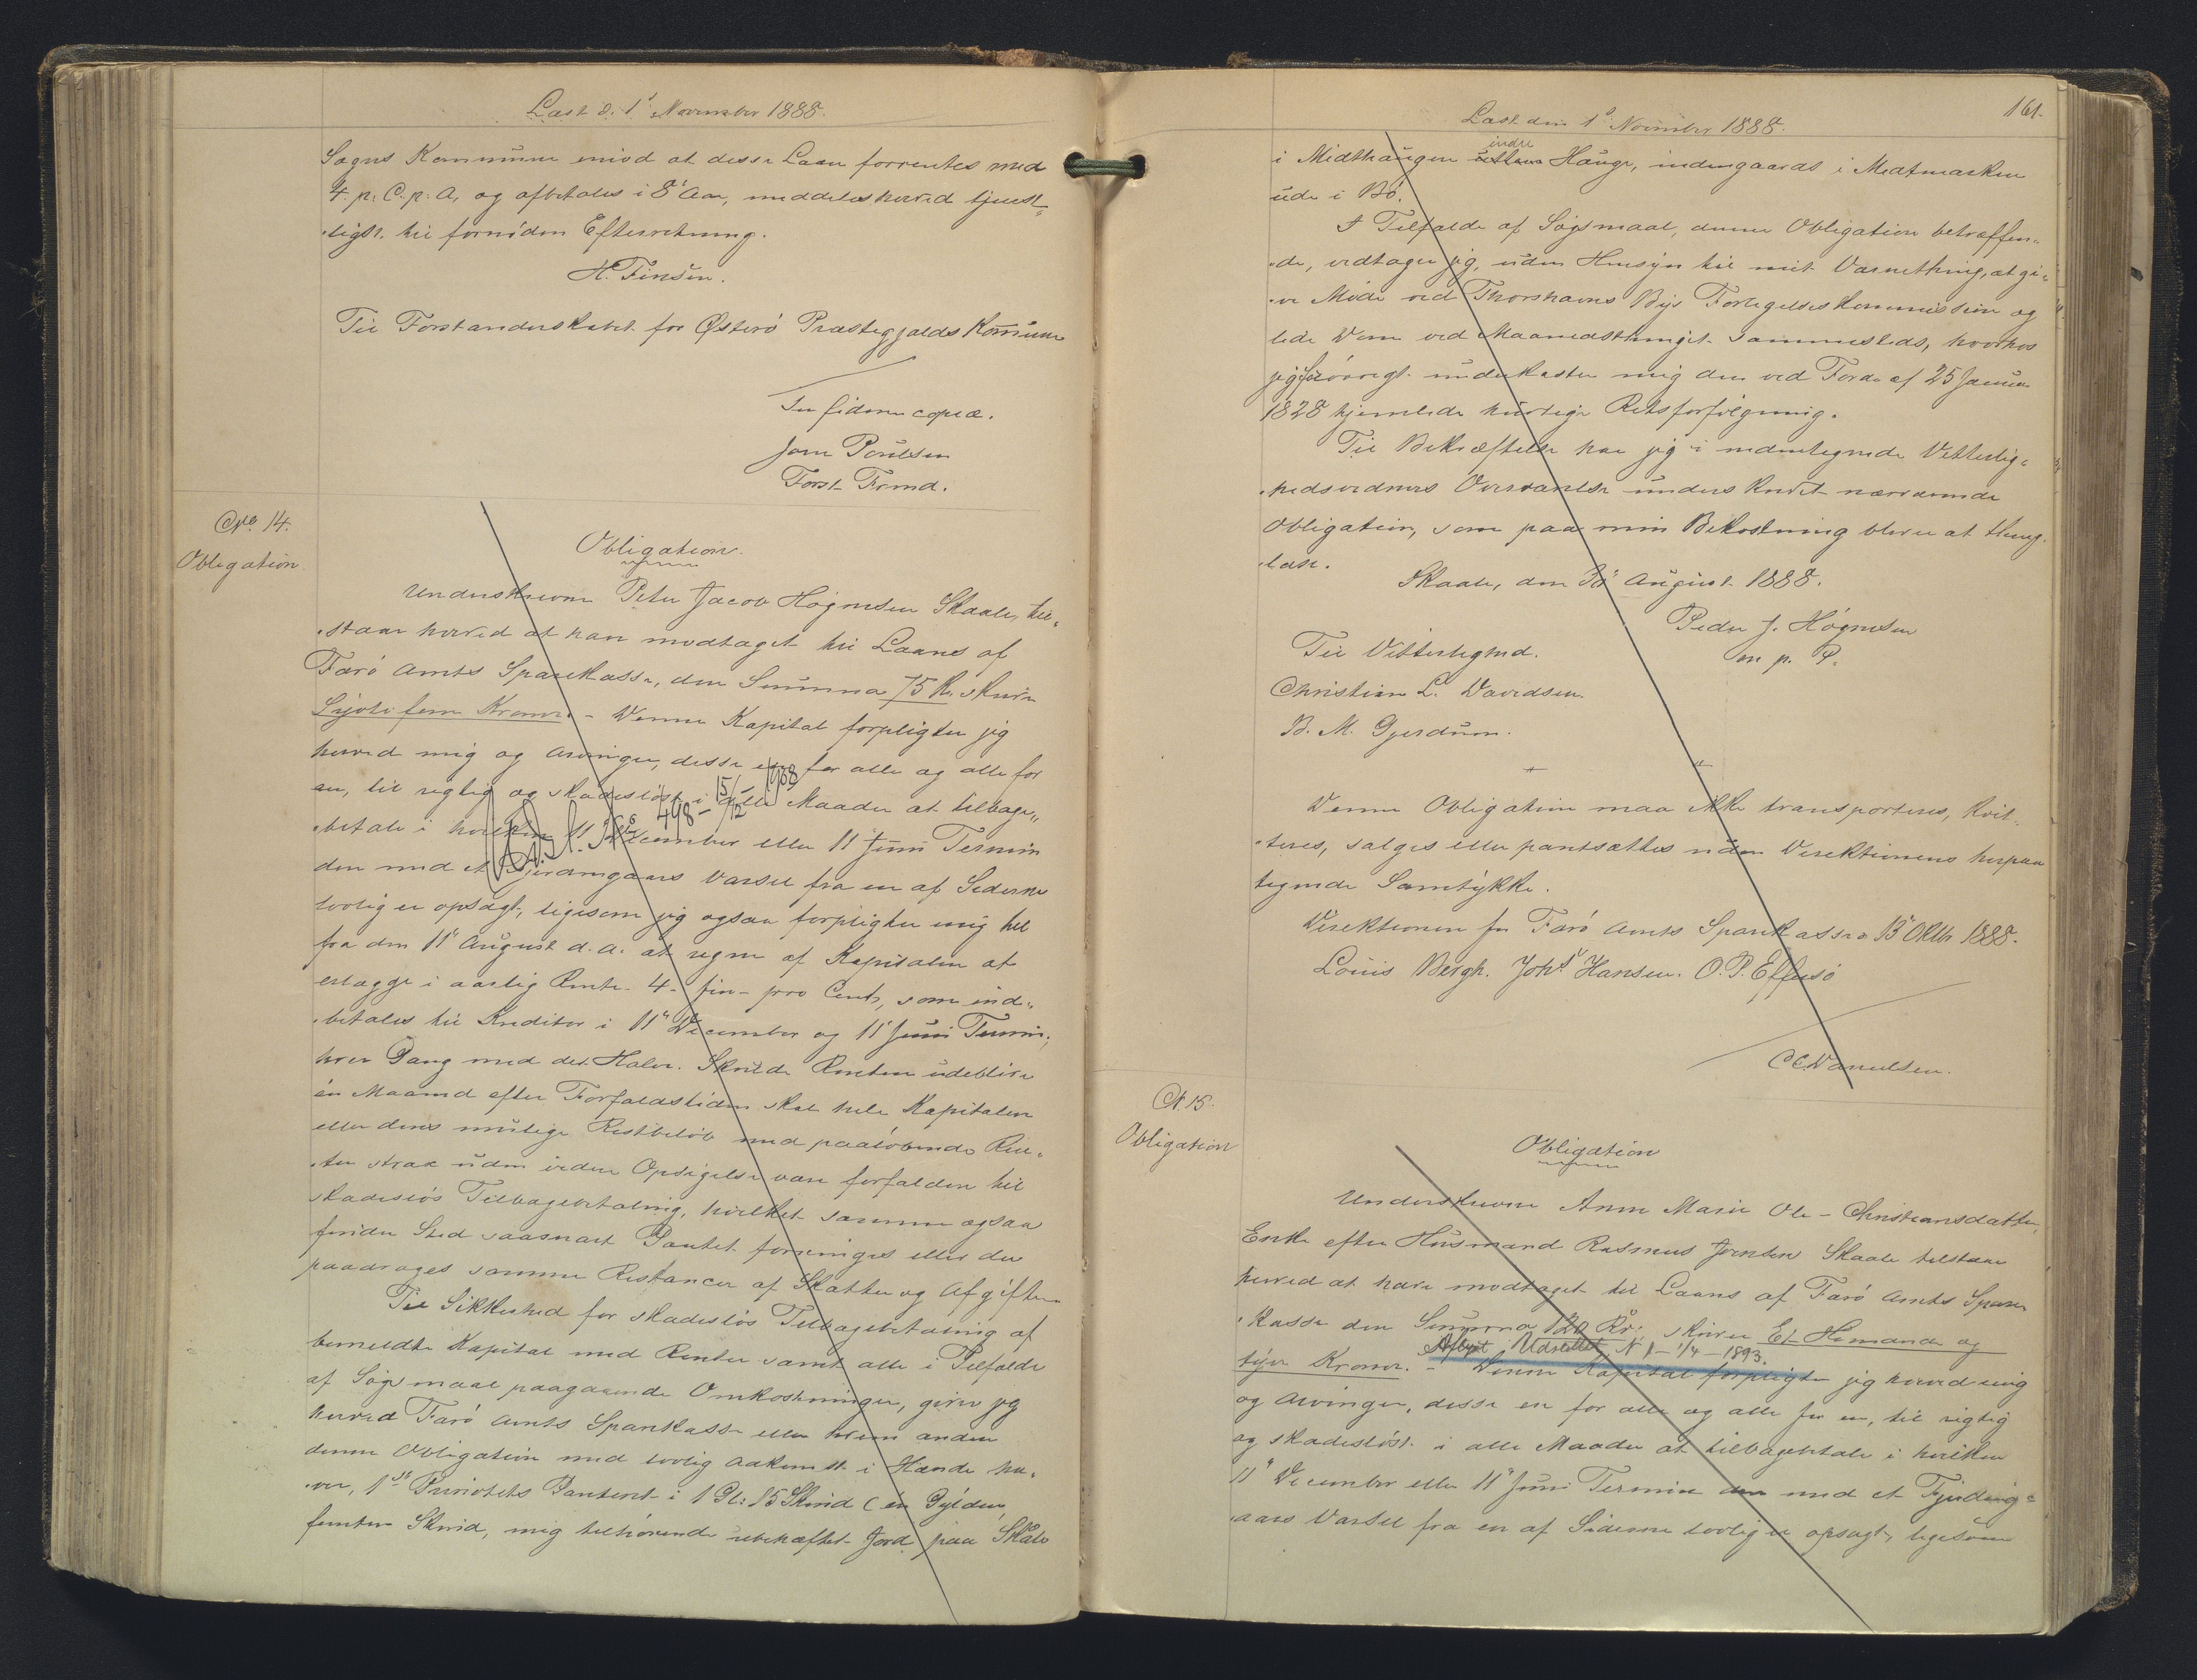 Læst d. 1' November 1888.
Sogns Kommune imod at disse Laan forrentes med
4. p. C. p. A. og afbetales i 8' Aar, meddeles herved tjenst-
ligst til fornöden Efterretning.
H. Finsen.
Til Forstanderskabet for Østerö Præstegjælds Kommune
In fidem copiæ.
Joen Poulsen
Forst. Frmd.
No. 14.
Obligation.
Obligation.
Underskrevne Peter Jacob Högnesen Skaale, til-
staar herved at have modtaget til Laans af
Færö Amts Sparekasse, den Summa 75 Kr. skriver
Syvti fem Kroner. - Denne Kapital forpligter jeg
herved mig og Arvinger, disse en for alle og alle for
en, til rigtig og skadeslöst i alle Maader at tilbage-
498 - 15/12 1908
betale i hvilken 11' December eller 11' Juni Termin
den med et Fjerdingaars Varsel fra en af Siderne
lovlig er opsagt, ligesom jeg ogsaa forpligter mig til
fra den 11' August d. A. at regne af Kapitalen at
erlægge i aarlig Rente - 4 - fire - pro Cent, som ind-
betales til Kreditor i 11' December og 11' Juni Termin,
hver Gang med det Halve. Skulde Renten udeblive
én Maaned efter Forfaldstiden skal hele Kapitalen
eller dens mulige Restbelöb med paalöbende Ren-
ter strax uden videre Opsigelse være forfalden til
skadeslös Tilbagebetaling, hvilket samme ogsaa
finder Sted saasnart Pantet forringes eller der
paadrages samme Restancer af Skatter og Afgifter.
Til Sikkerhed for skadeslös Tilbagebetaling af
bemeldte Kapital med Renter samt alle i Tilfælde
af Sögsmaal paagaaende Omkostninger, giver jeg
herved Færö Amts Sparekasse eller hvem anden
denne Obligation med lovlig Adkomst i Hænde ha-
ver, 1ste Prioritets Panteret i 1 Gl: 15 Skind (én Gylden,
femten Skind, mig tilhörende ubehæftet Jord paa Skåle
Læst den 1' November 1888.
161.
i Midthaugen indre Hauge, indengaards i Medmarken
ude i Bö.
I Tilfælde af Sögsmaal, denne Obligation betræffen-
de, vedtager jeg, uden Hensyn til mit Værnething, at gi-
ve Möde ved Thorshavns Bys Forligelseskommission og
lide Dom ved Maanedsthinget sammesteds, hvorhos
jeg forövrigt underkaster mig den ved Fordn af 25 Januar
1828 hjemlede hurtige Retsforfölgning.
Til Bekræftelse har jeg i medundertegnede Vitterlig-
hedsvidners Overværelse underskrevet nærværende
Obligation, som paa min Bekostning bliver at thing-
læse.
Skaale, den 30' August 1888.
Peder J. Högnesen
m. p. P.
Til Vitterlighed.
Christian L. Davidsen.
B. M. Gjerdum.
Denne Obligation maa ikke transporteres, kvit-
teres, sælges eller pantsættes uden Direktionens herpaa
tegnede Samtykke.
Direktionen for Færö Amts Sparekasse 13' Oktbr 1888.
Louis Bergh. Johs Hansen. O. P. Effersö
C C Danielsen.
N. 15.
Obligation
Obligation
Underskrevne Anne Marie Ole-Christiansdatter,
Enke efter Husmand Rasmus Joensen Skaale tilstaar
herved at have modtaget til Laans af Færö Amts Spare-
kasse den Summa 120 Kr: skriver Et Hundrede og
Aflyst Udslettet, N 1 - 1/4 - 1893.
tyve Kroner. - Denne Kapital forpligter jeg herved mig
og Arvinger, disse en for alle og alle for en, til rigtig
og skadeslöst i alle Maader at tilbagebetale i hvilken
11' December eller 11' Juni Termin den med et Fjerding-
aars Varsel fra en af Siderne lovlig er opsagt, ligesom